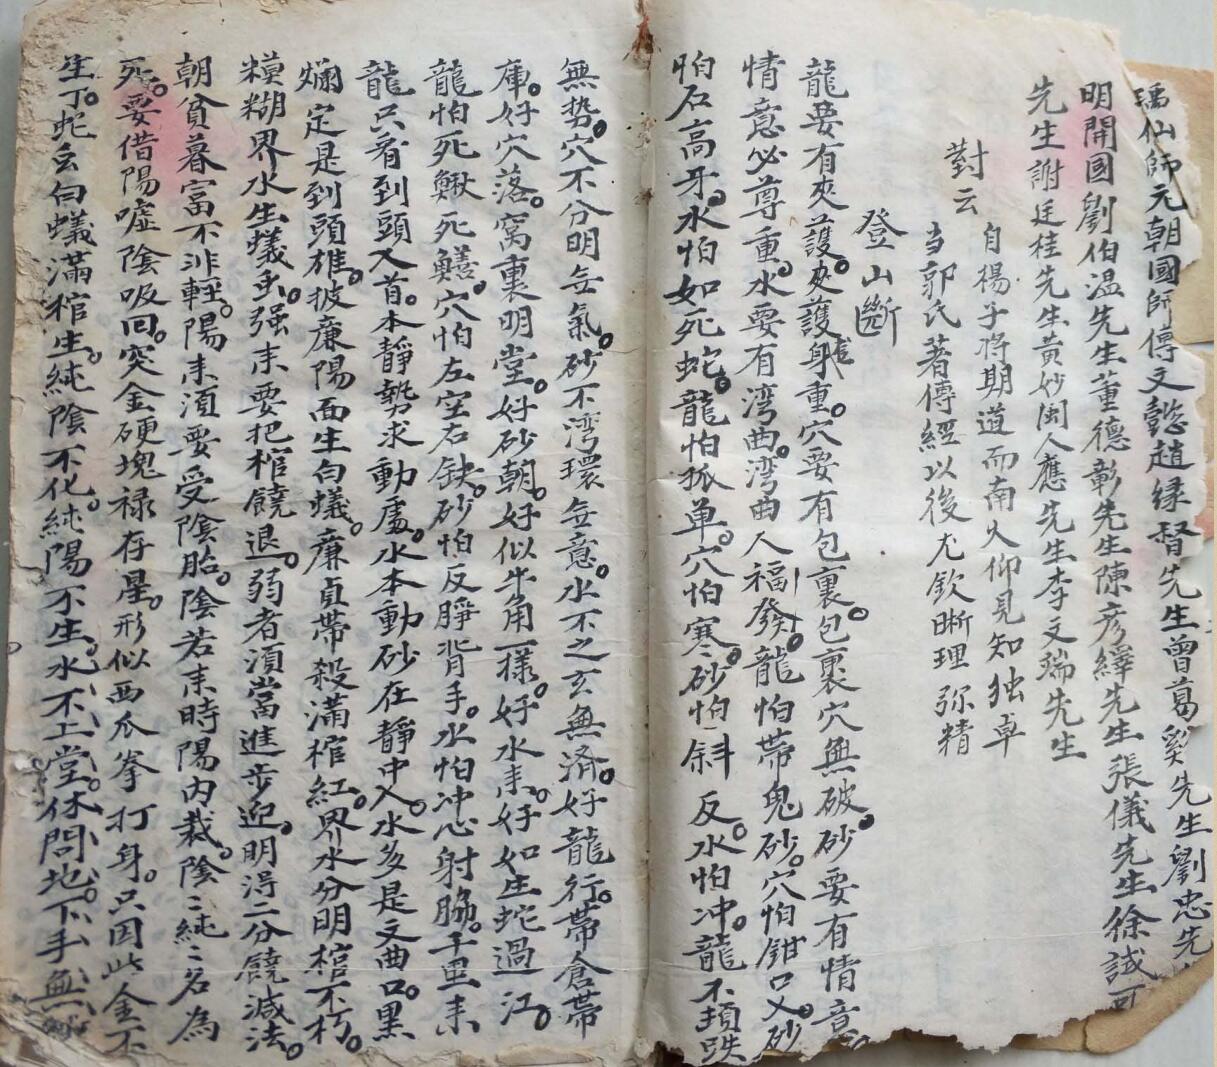 瑀仙師元朝國師傳文懿趙緣督先生曾葛奚先生劉忠先
明開國劉伯温先生董德彰先生陳彦繹先生張儀先生徐試可
先生謝廷桂先生黃妙閩人應先生李文瑞先生
對云
自楊子將期道而南火仰見知独卓
当郭氏著傳經以後尤欽晰理弥精
登山斷
龍要有夾護。夾護龍身重。穴要有包裏。包裹穴無破。砂要有情意。
情意必尊重。水要有湾曲。湾曲人福發。龍怕帶鬼砂。穴怕鉗口乂。砂
怕石高牙。水怕如死蛇。龍怕孤单。穴怕寒。砂怕斜反。水怕冲。龍不頊跌
無勢。穴不分明無氣。砂不湾環無意。水不之玄無済。好龍行。帶倉帶
庫。好穴落。窩裏明堂。好砂朝。好似牛角一樣。好水来。好如生蛇過江。
龍怕死鰍死鱔。穴怕左空右缺。砂怕反睜背手。水怕冲心射脇。千里来
龍只看到頭入首。本靜勢求動處。水本動砂在靜中入。水多是文曲口。黑
爛定是到頭雄。披廉陽面生白蟻。廉貞帶殺滿棺紅。界水分明棺不朽。
糢糊界水生蟻虫。强来要把棺饒退。弱者湏當進步迎。明淂二分饒減法。
朝貧暮富不非輕。陽来湏要受陰胎。陰若来時陽内裁。陰二純二名為
死。要借陽噓陰吸回。突金硬塊禄存星。形似西瓜拳打身。只因此金不
生丁。蛇玄白蟻滿棺生。純陰不化。純陽不生。水不上堂。休問地。下手無